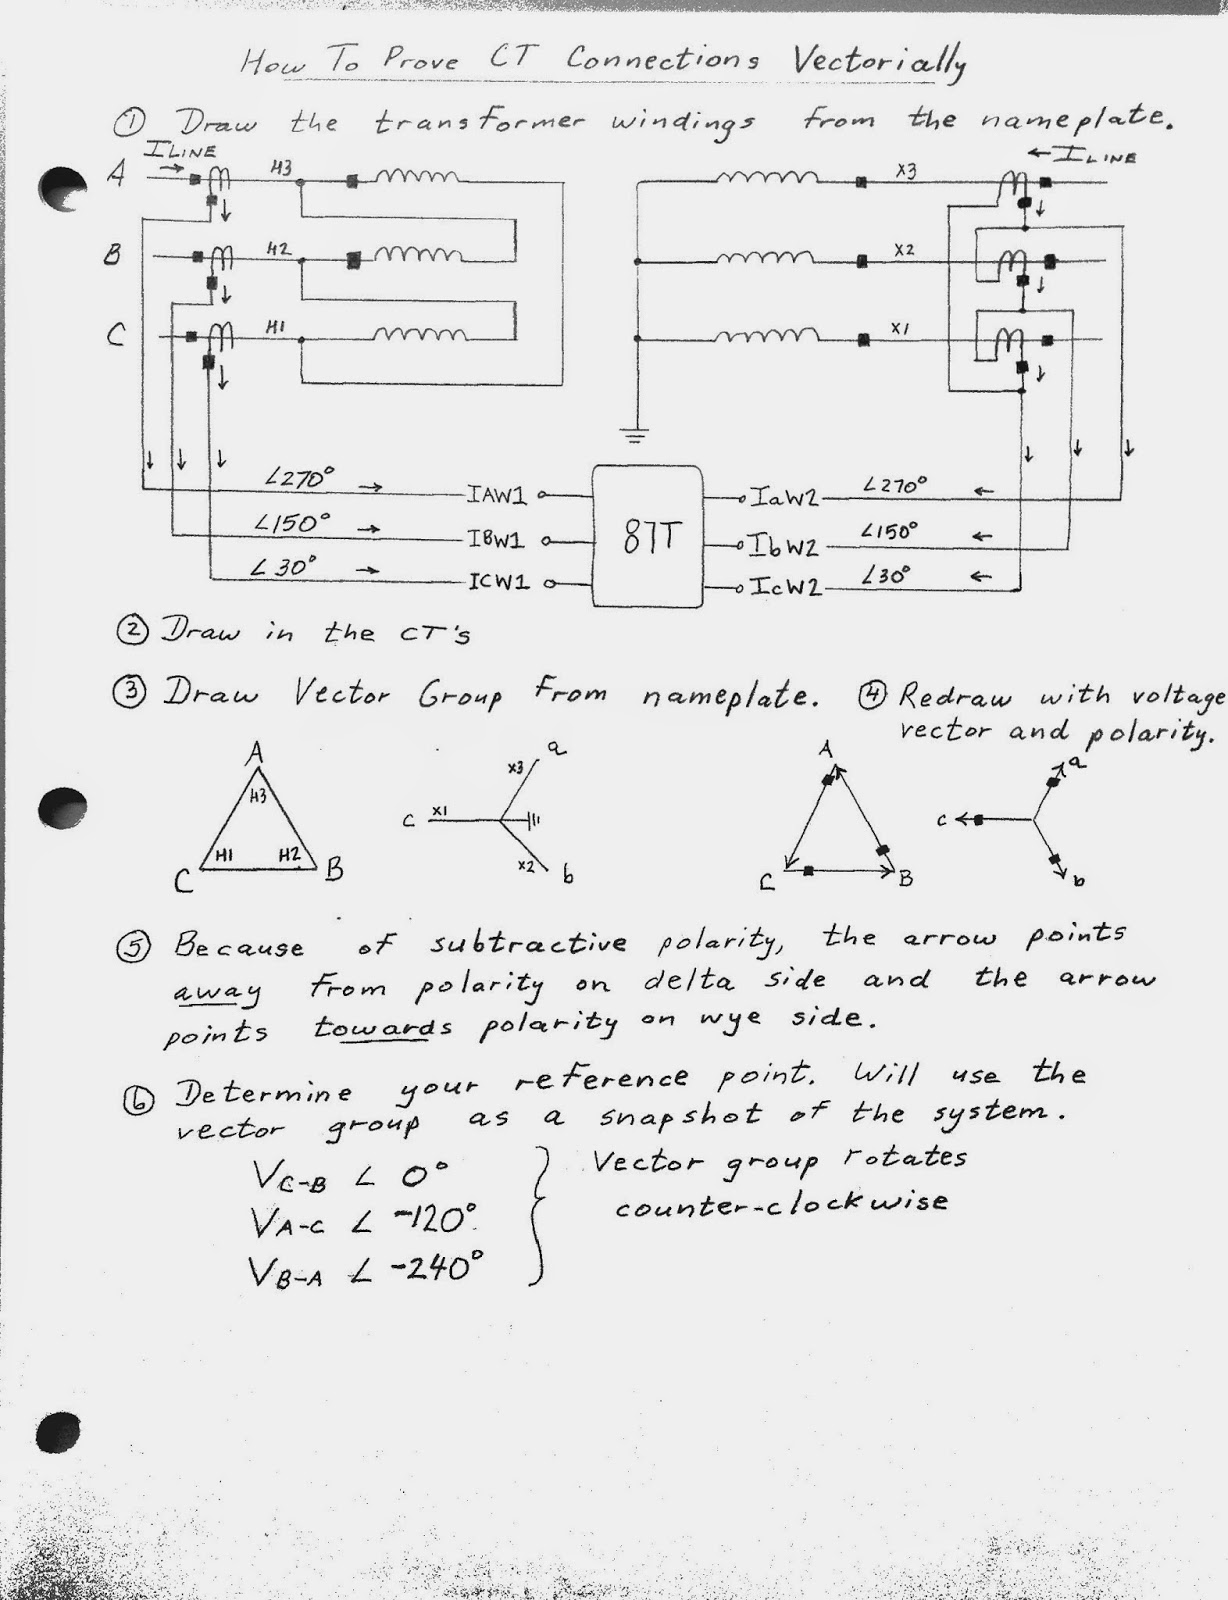 How To Prove CT Connections Vectorially
① Draw the transformer windings from the nameplate.
ILINE
←ILINE
A H3 X3
B H2 X2
C H1 X1
∠270° → IAW1 IaW2 ∠270° ←
∠150° → IBW1 87T IbW2 ∠150° ←
∠30° → ICW1 IcW2 ∠30° ←
② Draw in the CT's
③ Draw Vector Group from nameplate.
④ Redraw with voltage
vector and polarity.
A
H3
H1 H2
C B
X3 a
C X1
X2 b
A
C B
a
c
b
⑤ Because of subtractive polarity, the arrow points
away from polarity on delta side and the arrow
points towards polarity on wye side.
⑥ Determine your reference point. Will use the
vector group as a snapshot of the system.
VC-B ∠ 0°
VA-C ∠ -120°
VB-A ∠ -240°
Vector group rotates
counter-clockwise